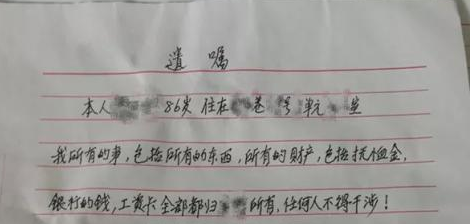 遗嘱
本人 86岁 住在 巷 号 单元 室
我所有的事,包括所有的东西,所有的财产,包括抚恤金.
银行的钱,工资卡全部都归 所有.任何人不得干涉!